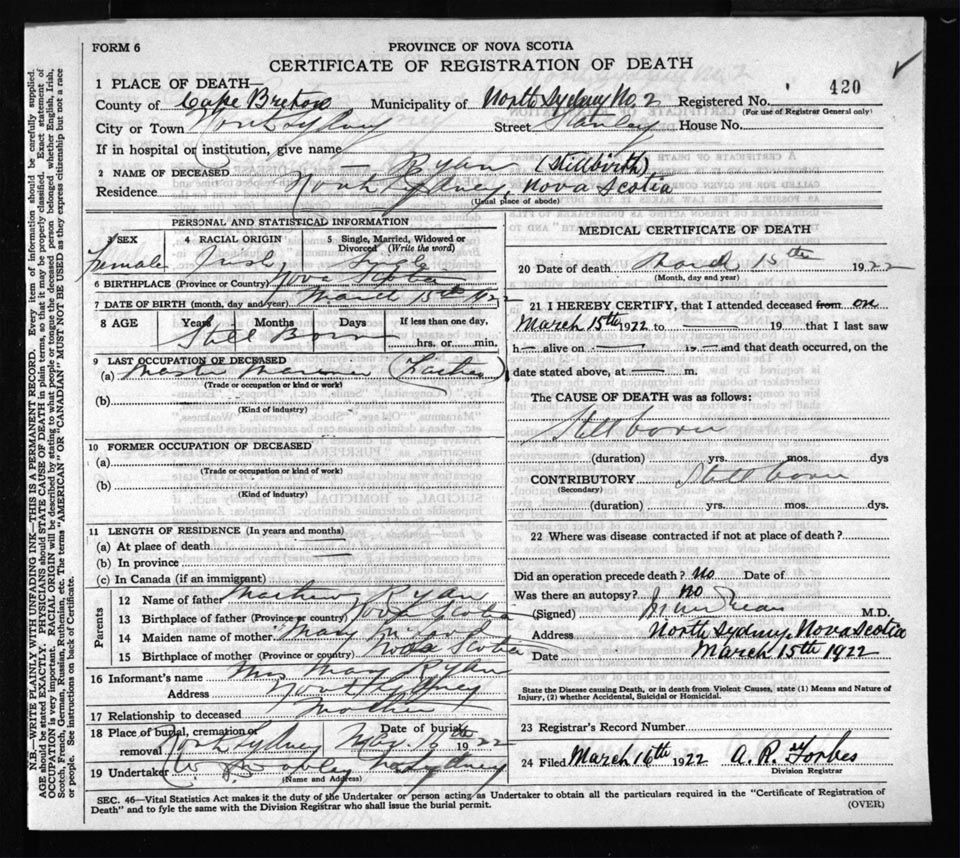 FORM 6
PROVINCE OF NOVA SCOTIA
CERTIFICATE OF REGISTRATION OF DEATH
420
1 PLACE OF DEATH—
County of Cape Breton Municipality of North Sydney No. 2 Registered No.
(For use of Registrar General only)
City or Town North Sydney Street Stanley House No.
If in hospital or institution, give name
2 NAME OF DECEASED — Ryan (Stillbirth)
Residence North Sydney, Nova Scotia
(Usual place of abode)
PERSONAL AND STATISTICAL INFORMATION
3 SEX 4 RACIAL ORIGIN 5 Single, Married, Widowed or Divorced (Write the word)
Female Irish Single
6 BIRTHPLACE (Province or Country) Nova Scotia
7 DATE OF BIRTH (month, day and year) March 15th 1922
8 AGE Years Months Days If less than one day,
Still Born hrs. or min.
9 LAST OCCUPATION OF DECEASED
(a) Master Mariner (Father)
(Trade or occupation or kind of work)
(b)
(Kind of industry)
10 FORMER OCCUPATION OF DECEASED
(a)
(Trade or occupation or kind of work)
(b)
(Kind of industry)
11 LENGTH OF RESIDENCE (In years and months)
(a) At place of death —
(b) In province
(c) In Canada (if an immigrant) —
Parents
12 Name of father Mathew Ryan
13 Birthplace of father (Province or country) Nova Scotia
14 Maiden name of mother Mary
15 Birthplace of mother (Province or country) Nova Scotia
16 Informant's name Mrs Mary Ryan
Address North Sydney
17 Relationship to deceased Mother
18 Place of burial, cremation or removal North Sydney Date of burial 1922
19 Undertaker N. Sydney
(Name and Address)
MEDICAL CERTIFICATE OF DEATH
20 Date of death March 15th 1922
(Month, day and year)
21 I HEREBY CERTIFY, that I attended deceased from on
March 15th 1922 to — 19 that I last saw
h— alive on — 19 — and that death occurred, on the
date stated above, at — m.
The CAUSE OF DEATH was as follows:
Still born
(duration) yrs. mos. dys
CONTRIBUTORY Still born
(Secondary)
(duration) yrs. mos. dys.
22 Where was disease contracted if not at place of death?
Did an operation precede death? No Date of
Was there an autopsy? No
(Signed) M.D.
Address North Sydney, Nova Scotia
Date March 15th 1922
State the Disease causing Death, or in death from Violent Causes, state (1) Means and Nature of
Injury, (2) whether Accidental, Suicidal or Homicidal.
23 Registrar's Record Number
24 Filed March 16th 1922 A. R. Forbes
Division Registrar
SEC. 46—Vital Statistics Act makes it the duty of the Undertaker or person acting as Undertaker to obtain all the particulars required in the "Certificate of Registration of
Death" and to fyle the same with the Division Registrar who shall issue the burial permit.
(OVER)
N.B.—WRITE PLAINLY, WITH UNFADING INK—THIS IS A PERMANENT RECORD. Every item of information should be carefully supplied.
AGE should be stated EXACTLY. PHYSICIANS should STATE CAUSE OF DEATH in plain terms, so that it may be properly classified. Exact statement of
OCCUPATION is very important. RACIAL ORIGIN will be described by stating to what people or tongue the deceased person belonged whether English, Irish,
Scotch, French, German, Russian, Ruthenian, etc. The terms "AMERICAN" OR "CANADIAN" MUST NOT BE USED as they express citizenship but not a race
or people. See instructions on back of Certificate.